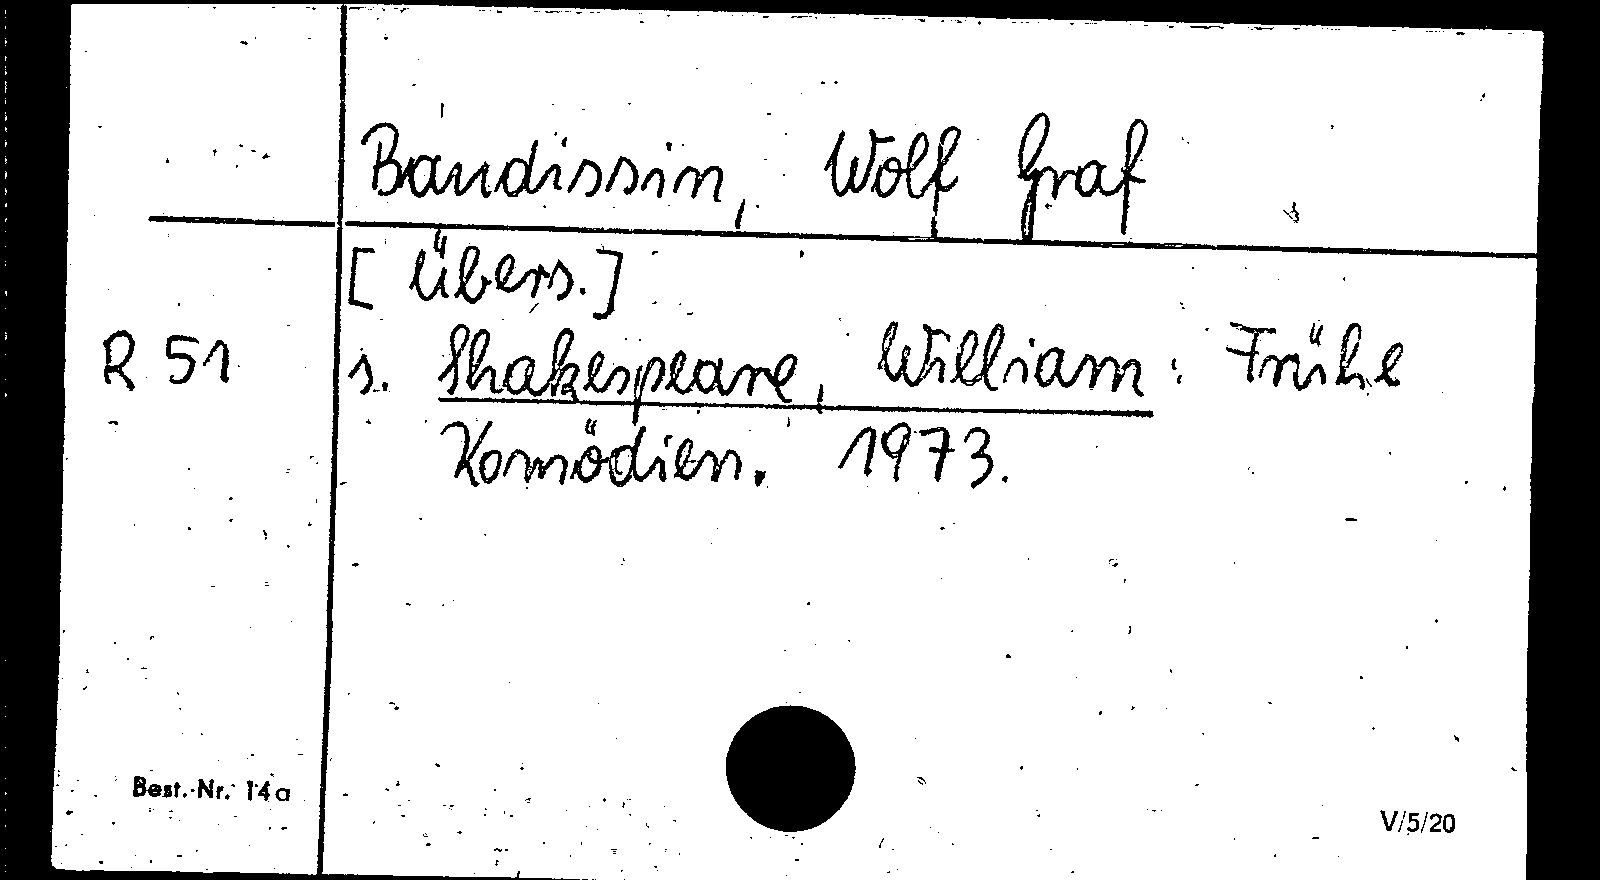 Baudissin, Wolf Graf
[Übers.]
R 51 s. Shakespeare, William: Frühe
Komödien. 1973.
Best.-Nr. 14a
V/5/20